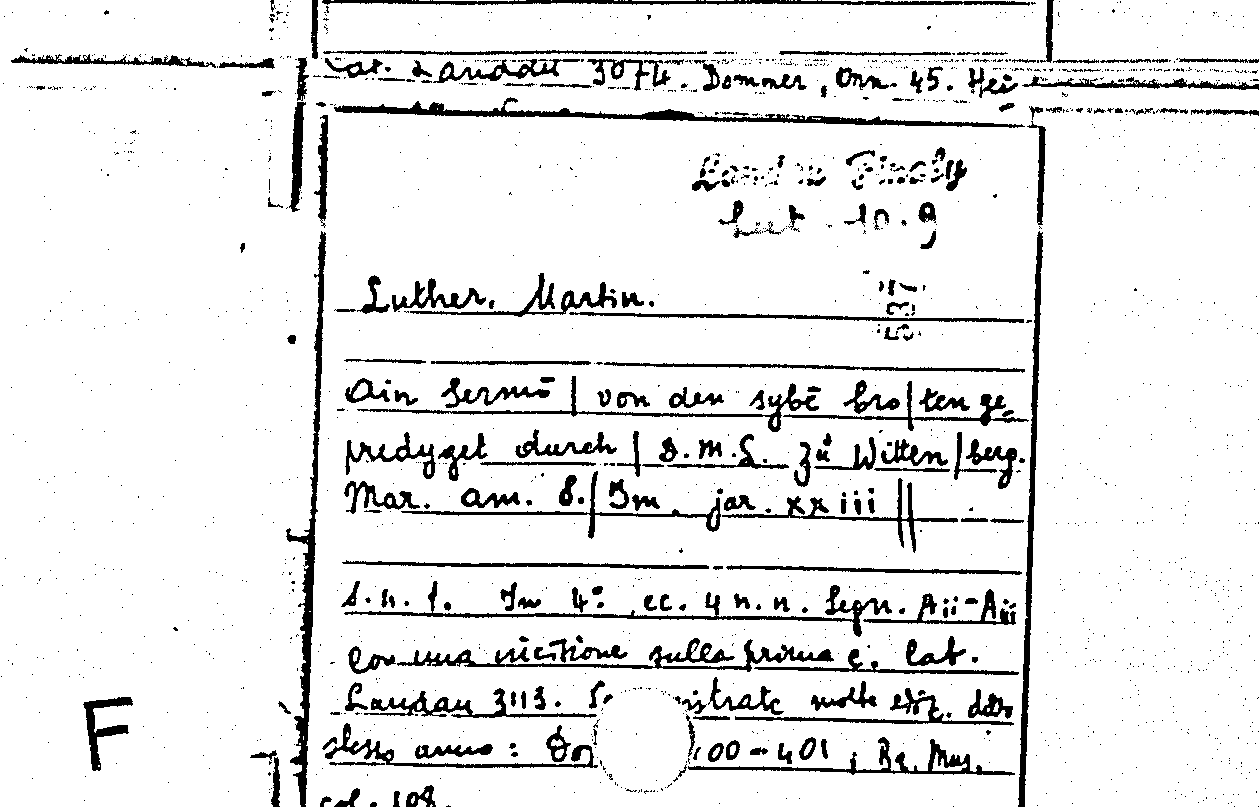 Cat. Landau 3074. Dommer, Orn. 45. Hei
Landau Finaly
Lut. 10.9
Luther. Martin.
Ain Sermō | von den sybē bro|ten ge=
predyget durch | D.M.L. zů Witten|berg.
Mar. am. 8.| Im. jar. xxiii ||
s.n.t. In 4º, cc. 4 n.n. Segn. Aii-Aiii
Con una incisione sulla prima c. Cat.
Landau 3113. molte ediz. dello
stesso anno: 00-401, Br. Mus.
col. 108.
F